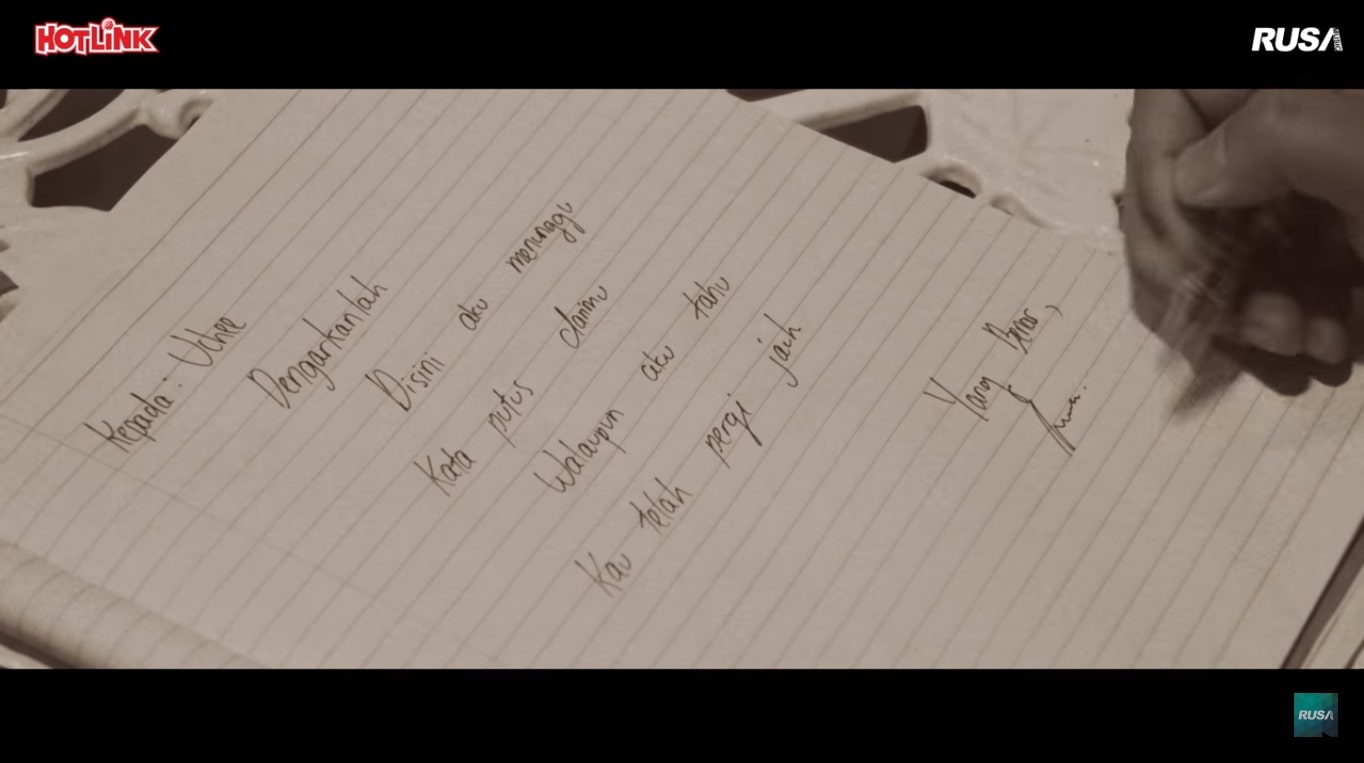 HOTLINK
RUSA
Kepada: Uchee
Dengarkanlah
Disini aku menunggu
Kata putus darimu
Walaupun aku tahu
Kau telah pergi jauh
Yang Benar,
RUSA